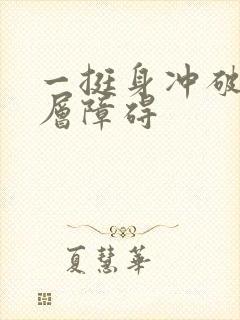 一挺身冲破
层障碍
夏慧华